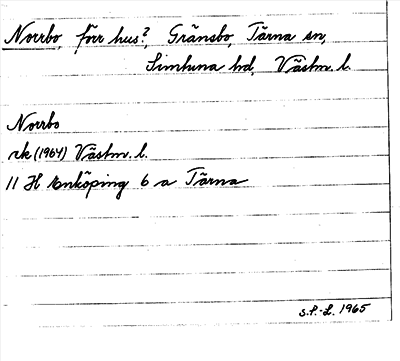 Norrbo, förr hus?, Gränsbo, Tärna sn,
Simtuna hd, Västm. l.
Norrbo
rk (1964) Västm. l.
11 H Enköping 6 a Tärna
S.P.-L. 1965